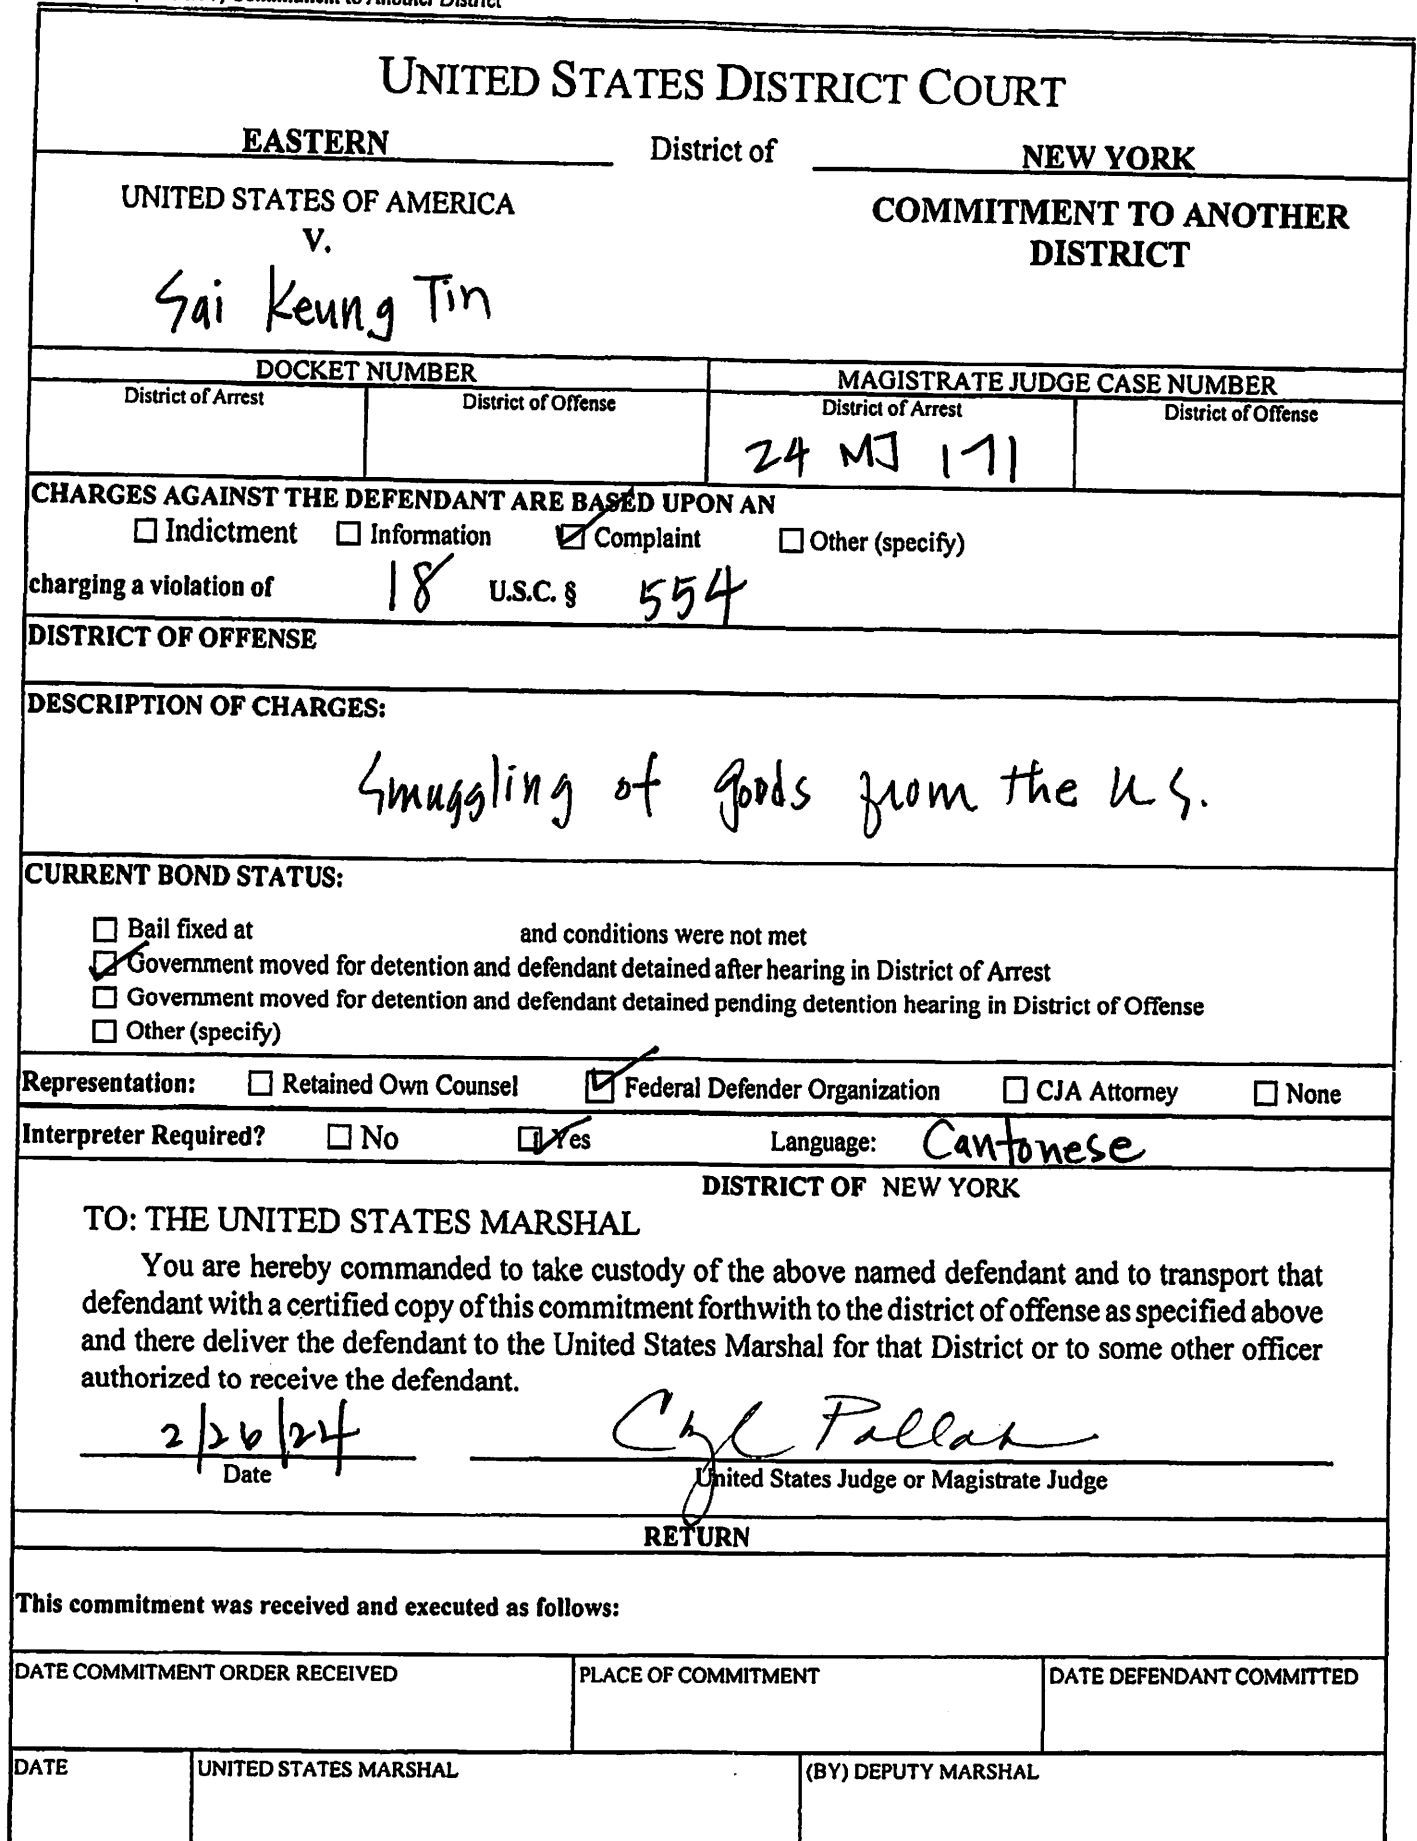 Commitment to Another District
UNITED STATES DISTRICT COURT
EASTERN District of NEW YORK
UNITED STATES OF AMERICA
V.
Sai Keung Tin
COMMITMENT TO ANOTHER
DISTRICT
DOCKET NUMBER
MAGISTRATE JUDGE CASE NUMBER
District of Arrest
District of Offense
District of Arrest
District of Offense
24 MJ 171
CHARGES AGAINST THE DEFENDANT ARE BASED UPON AN
☐ Indictment ☐ Information ☑ Complaint ☐ Other (specify)
charging a violation of 18 U.S.C. § 554
DISTRICT OF OFFENSE
DESCRIPTION OF CHARGES:
Smuggling of goods from the U.S.
CURRENT BOND STATUS:
☐ Bail fixed at and conditions were not met
☑ Government moved for detention and defendant detained after hearing in District of Arrest
☐ Government moved for detention and defendant detained pending detention hearing in District of Offense
☐ Other (specify)
Representation: ☐ Retained Own Counsel ☑ Federal Defender Organization ☐ CJA Attorney ☐ None
Interpreter Required? ☐ No ☑ Yes Language: Cantonese
DISTRICT OF NEW YORK
TO: THE UNITED STATES MARSHAL
You are hereby commanded to take custody of the above named defendant and to transport that
defendant with a certified copy of this commitment forthwith to the district of offense as specified above
and there deliver the defendant to the United States Marshal for that District or to some other officer
authorized to receive the defendant.
2/26/24
Date
United States Judge or Magistrate Judge
RETURN
This commitment was received and executed as follows:
DATE COMMITMENT ORDER RECEIVED
PLACE OF COMMITMENT
DATE DEFENDANT COMMITTED
DATE
UNITED STATES MARSHAL
(BY) DEPUTY MARSHAL